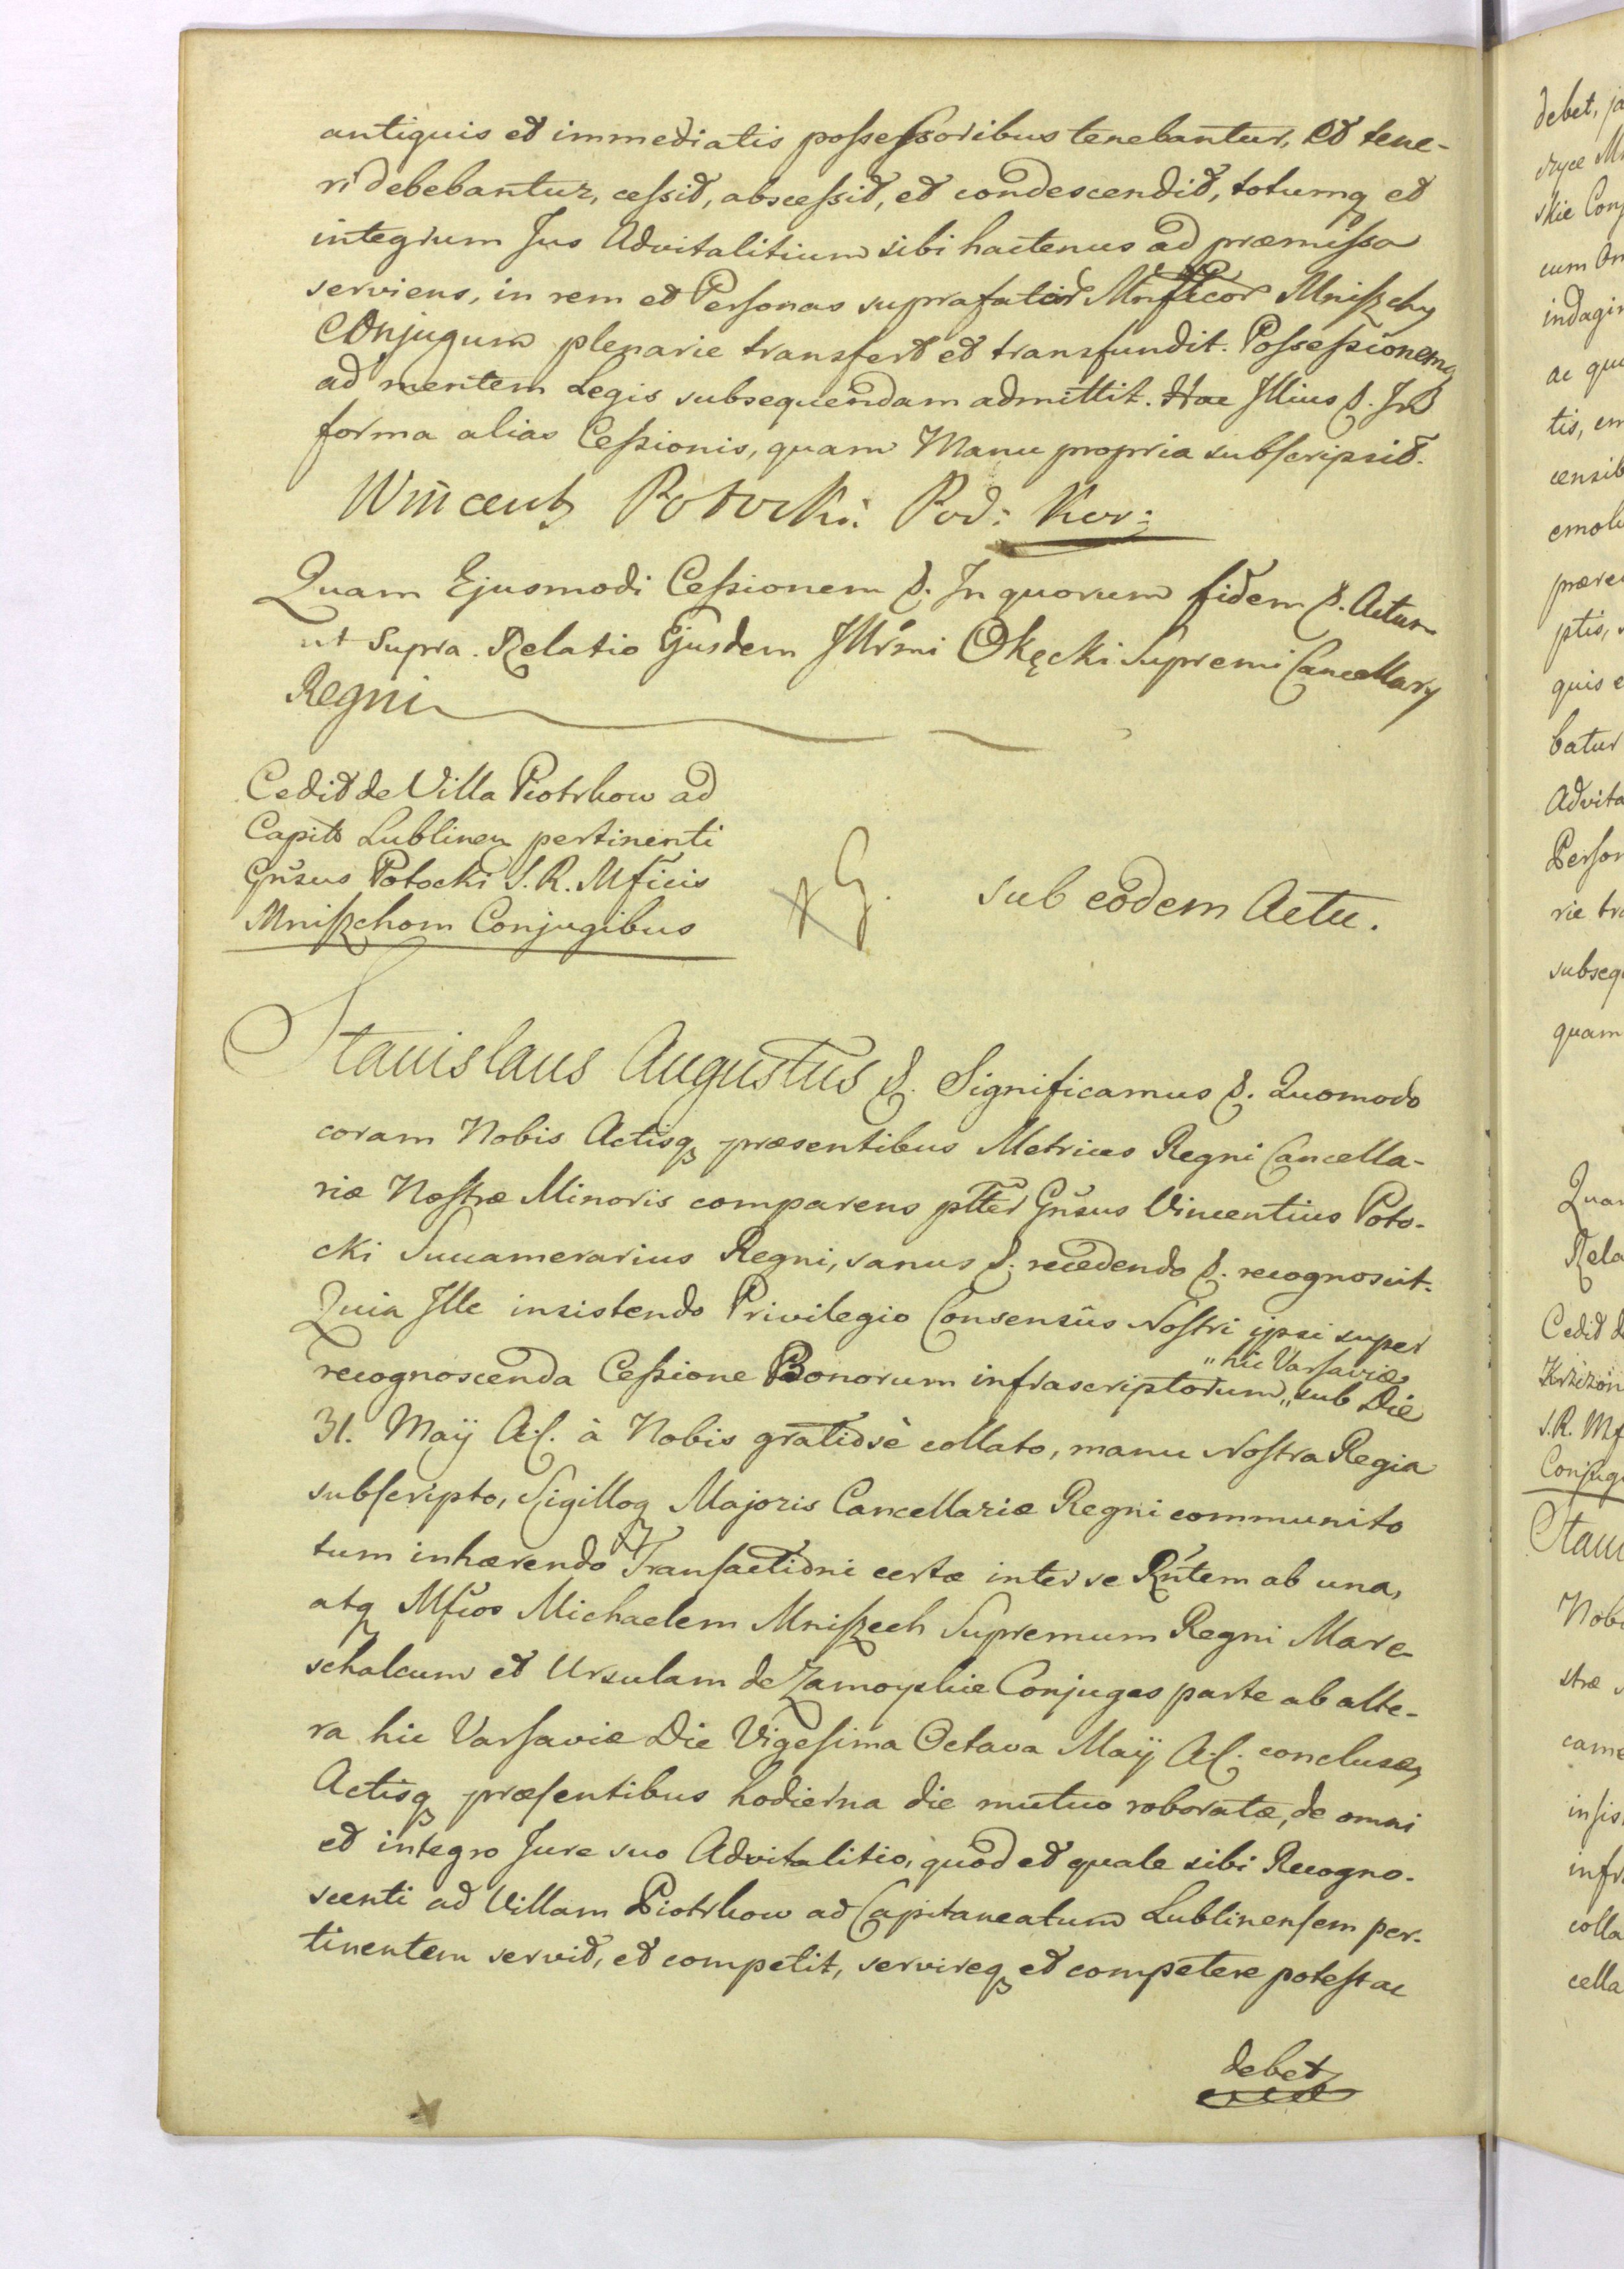 antiquis et immediatis possessoribus tenebantur, et tene-
ri debebantur, cessit, abscessit, et condescendit, totumq et
integrum Jus Advitalitium sibi hactenus ad præmissa
serviens, in rem et Personas suprafator Mnficor Mniszchy
Conjugum plenarie transfert et transfundit. Possessionemq
ad mentem Legis subsequendam admittit. Hac Illius &.
forma alias Cessionis, quam Manu propria subscripsit.
Wincenty Potocki Pod: Kor:
Quam Ejusmodi Cessionem &. In quorum fidem &. Actum
ut Supra. Relatio Ejusdem Illrmi Okęcki Supremi Cancellary
Regni
Cedit de Villa Piotrkow ad
Capitt Lublinen pertinenti
Gnsus Potocki S. R. Mficis
Mniszchom Conjugibus
G.
sub eodem Actu.
Stanislaus Augustus &. Significamus &. Quomodo
coram Nobis Actisq præsentibus Metrices Regni Cancella-
riæ Nostræ Minoris comparens ptter Gnsus Vincentius Poto-
cki Succamerarius Regni, sanus &. recedendo &. recognoscit.
Quia Ille insistendo Privilegio Consensûs Nostri ipsi super
recognoscenda Cessione Bonorum infrascriptorum „ sub Die
„ hic Varsaviæ
31. Maÿ A:C. à Nobis gratiosè collato, manu Nostra Regia
subscripto, Sigilloq Majoris Cancellariæ Regni communito
tum inhærendo Transactioni certæ inter se Rntem ab una,
atq Mficos Michaelem Mniszech Supremum Regni Mare-
schalcum et Ursulam de Zamoyskie Conjuges parte ab alte-
ra hic Varsaviæ Die Vigesima Octava Maÿ A:C. conclusæ,
Actisq præsentibus hodierna die mutuo roboratæ, de omni
et integro Jure suo Advitalitio, quod et quale sibi Recogno-
scenti ad Villam Piotrkow ad Capitaneatum Lublinensem per-
tinentem servit, et competit, servireq et competere potest ac
debet
debet, ja
dzyce Mn
skie Conj
cum Om
indagin
ac qui
tis, em
censib
emolu
præve
ptis,
quis e
batur
Advita
Person
rie tra
subseq
quam
Quam
Rela
Cedit d
Krzizon
S.R. Mf
Conjug
Stani
Nobi
stræ
came
insis
infr
colla
cella